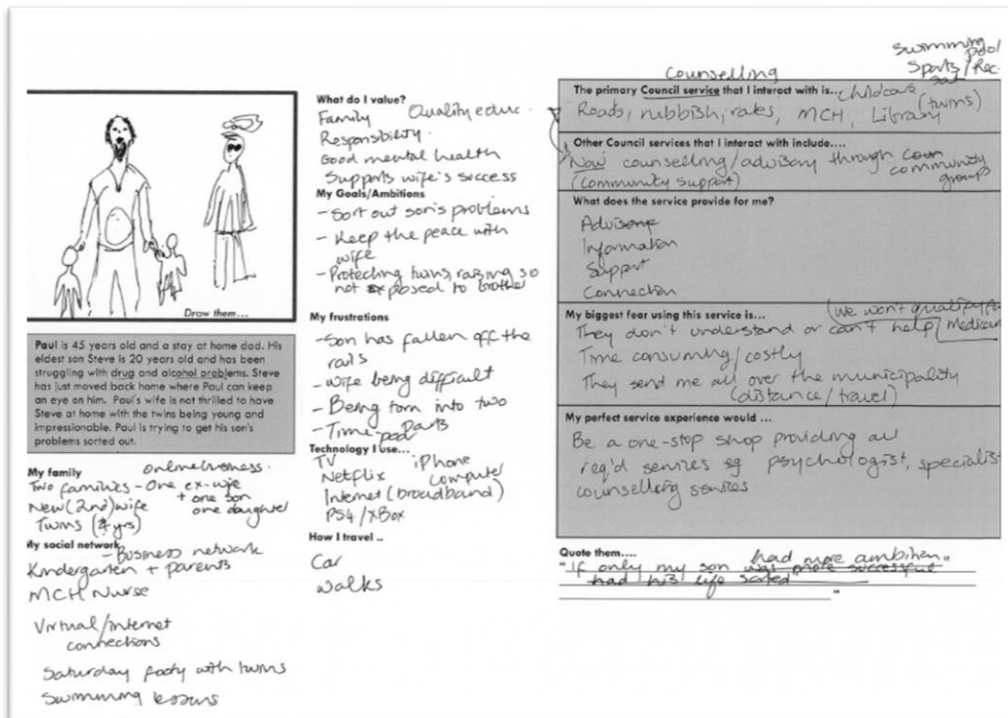 Draw them...
Paul is 45 years old and a stay at home dad. His
eldest son Steve is 20 years old and has been
struggling with drug and alcohol problems. Steve
has just moved back home where Paul can keep
an eye on him. Paul's wife is not thrilled to have
Steve at home with the twins being young and
impressionable. Paul is trying to get his son's
problems sorted out.
My family
online business.
Two families - One ex-wife
+ one son
one daughter
New (2nd) wife
Twins (4 yrs)
My social network
- Business network
Kindergarten + parents
MCH Nurse
Virtual/internet
connections
Saturday footy with twins
Swimming lessons
What do I value?
Family Quality educ.
Responsibility.
Good mental health
Supports wife's success
My Goals/Ambitions
- Sort out son's problems
- Keep the peace with
wife
- Protecting twins, raising so
not exposed to brother
My frustrations
- Son has fallen off the
rails
- Wife being difficult
- Being torn into two
parts
- Time-poor
Technology I use...
TV iPhone
Netflix computer
Internet (broadband)
PS4/XBox
How I travel ..
Car
walks
Swimming
pool
Sports/Rec.
Counselling
The primary Council service that I interact with is... childcare
Roads, rubbish, rates, MCH, Library (twins)
Other Council services that I interact with include....
Now counselling/advisory through community
groups
(community support)
What does the service provide for me?
Information
Support
Connection
My biggest fear using this service is...
(we won't qualify for
They don't understand or can't help/
Time consuming/costly
They send me all over the municipality
(distance/travel)
My perfect service experience would ...
Be a one-stop shop providing all
req'd services eg psychologist, specialist
counselling services
Quote them....
had more ambition"
"If only my son was more successful
had his life sorted"
"